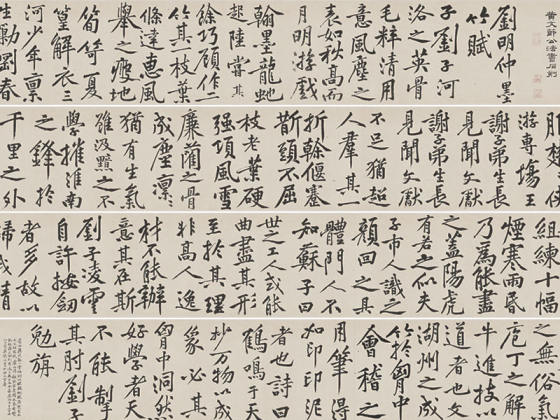 黃文節公法書石刻
劉明仲墨
竹賦
子劉子河
洛之英骨
毛粹清用
意風塵之
表如秋高而
月明游戲
翰墨龍蛇
起陸嘗其
餘巧顧作二
竹其一枝葉
條達惠風
舉之瘦地
筍笴夏
篁解衣三
河少年稟
生勁剛春
游專場王
謝子弟生長
見聞文獻
謝子弟生長
見聞文獻
不足猶超
人群其一
折榦偃蹇
斲頭不屈
枝老葉硬
强項風雪
廉藺之骨
成塵凜
猶有生氣
雖汲黯之不
學摧淮南
之鋒於
千里之外
組練十幅
煙寒雨昏
乃為能盡
之蓋陽虎
有若之似夫
子市人識之
顏回之具
體門人不
知蘇子曰
世之工人或能
曲盡其形
至於其理
非高人逸
材不能辦
意其在斯
劉子凌雲
自許按劍
者多故以
歸我請
之無俗氣
庖丁之解
牛進技
道者也文
湖州之成
竹於胸中
會稽之
用筆得
如印印泥
者也詩曰
鶴鳴于天
妙萬物以成
象必其
胸中洞然
好學者天
不能掣
其肘劉子
勉旃